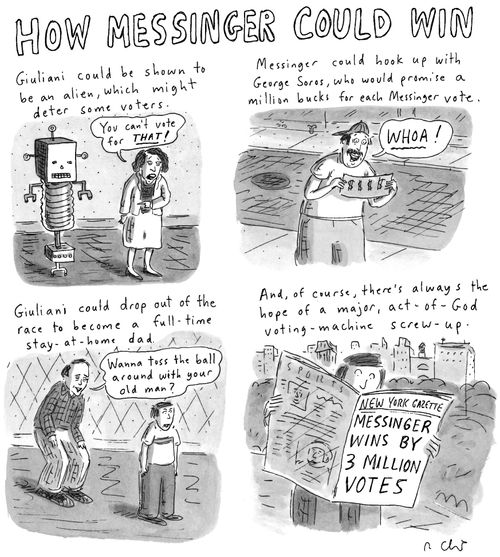 HOW MESSINGER COULD WIN
Giuliani could be shown to
be an alien, which might
deter some voters.
You can't vote
for THAT!
Messinger could hook up with
George Soros, who would promise a
million bucks for each Messinger vote.
WHOA!
$ $ $ $
Giuliani could drop out of the
race to become a full-time
stay-at-home dad.
Wanna toss the ball
around with your
old man?
And, of course, there's always the
hope of a major, act-of-God
voting-machine screw-up.
SPORTS
NEW YORK GAZETTE
MESSINGER
WINS BY
3 MILLION
VOTES